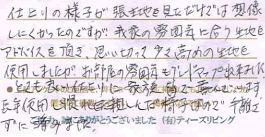 仕上りの様子が張生地を見ただけでは想像
しにくかったのですが、我家の雰囲気に合う生地を
アドバイスを頂き、思い切って少々高めの生地を
使用しましたがお部屋の雰囲気もグレードアップ出来ました
とても良い仕上りに家族皆で喜んでいます。
長年使用し
ずに済みました。
ご協力、誠にありがとうございました (有)ティーズリビング